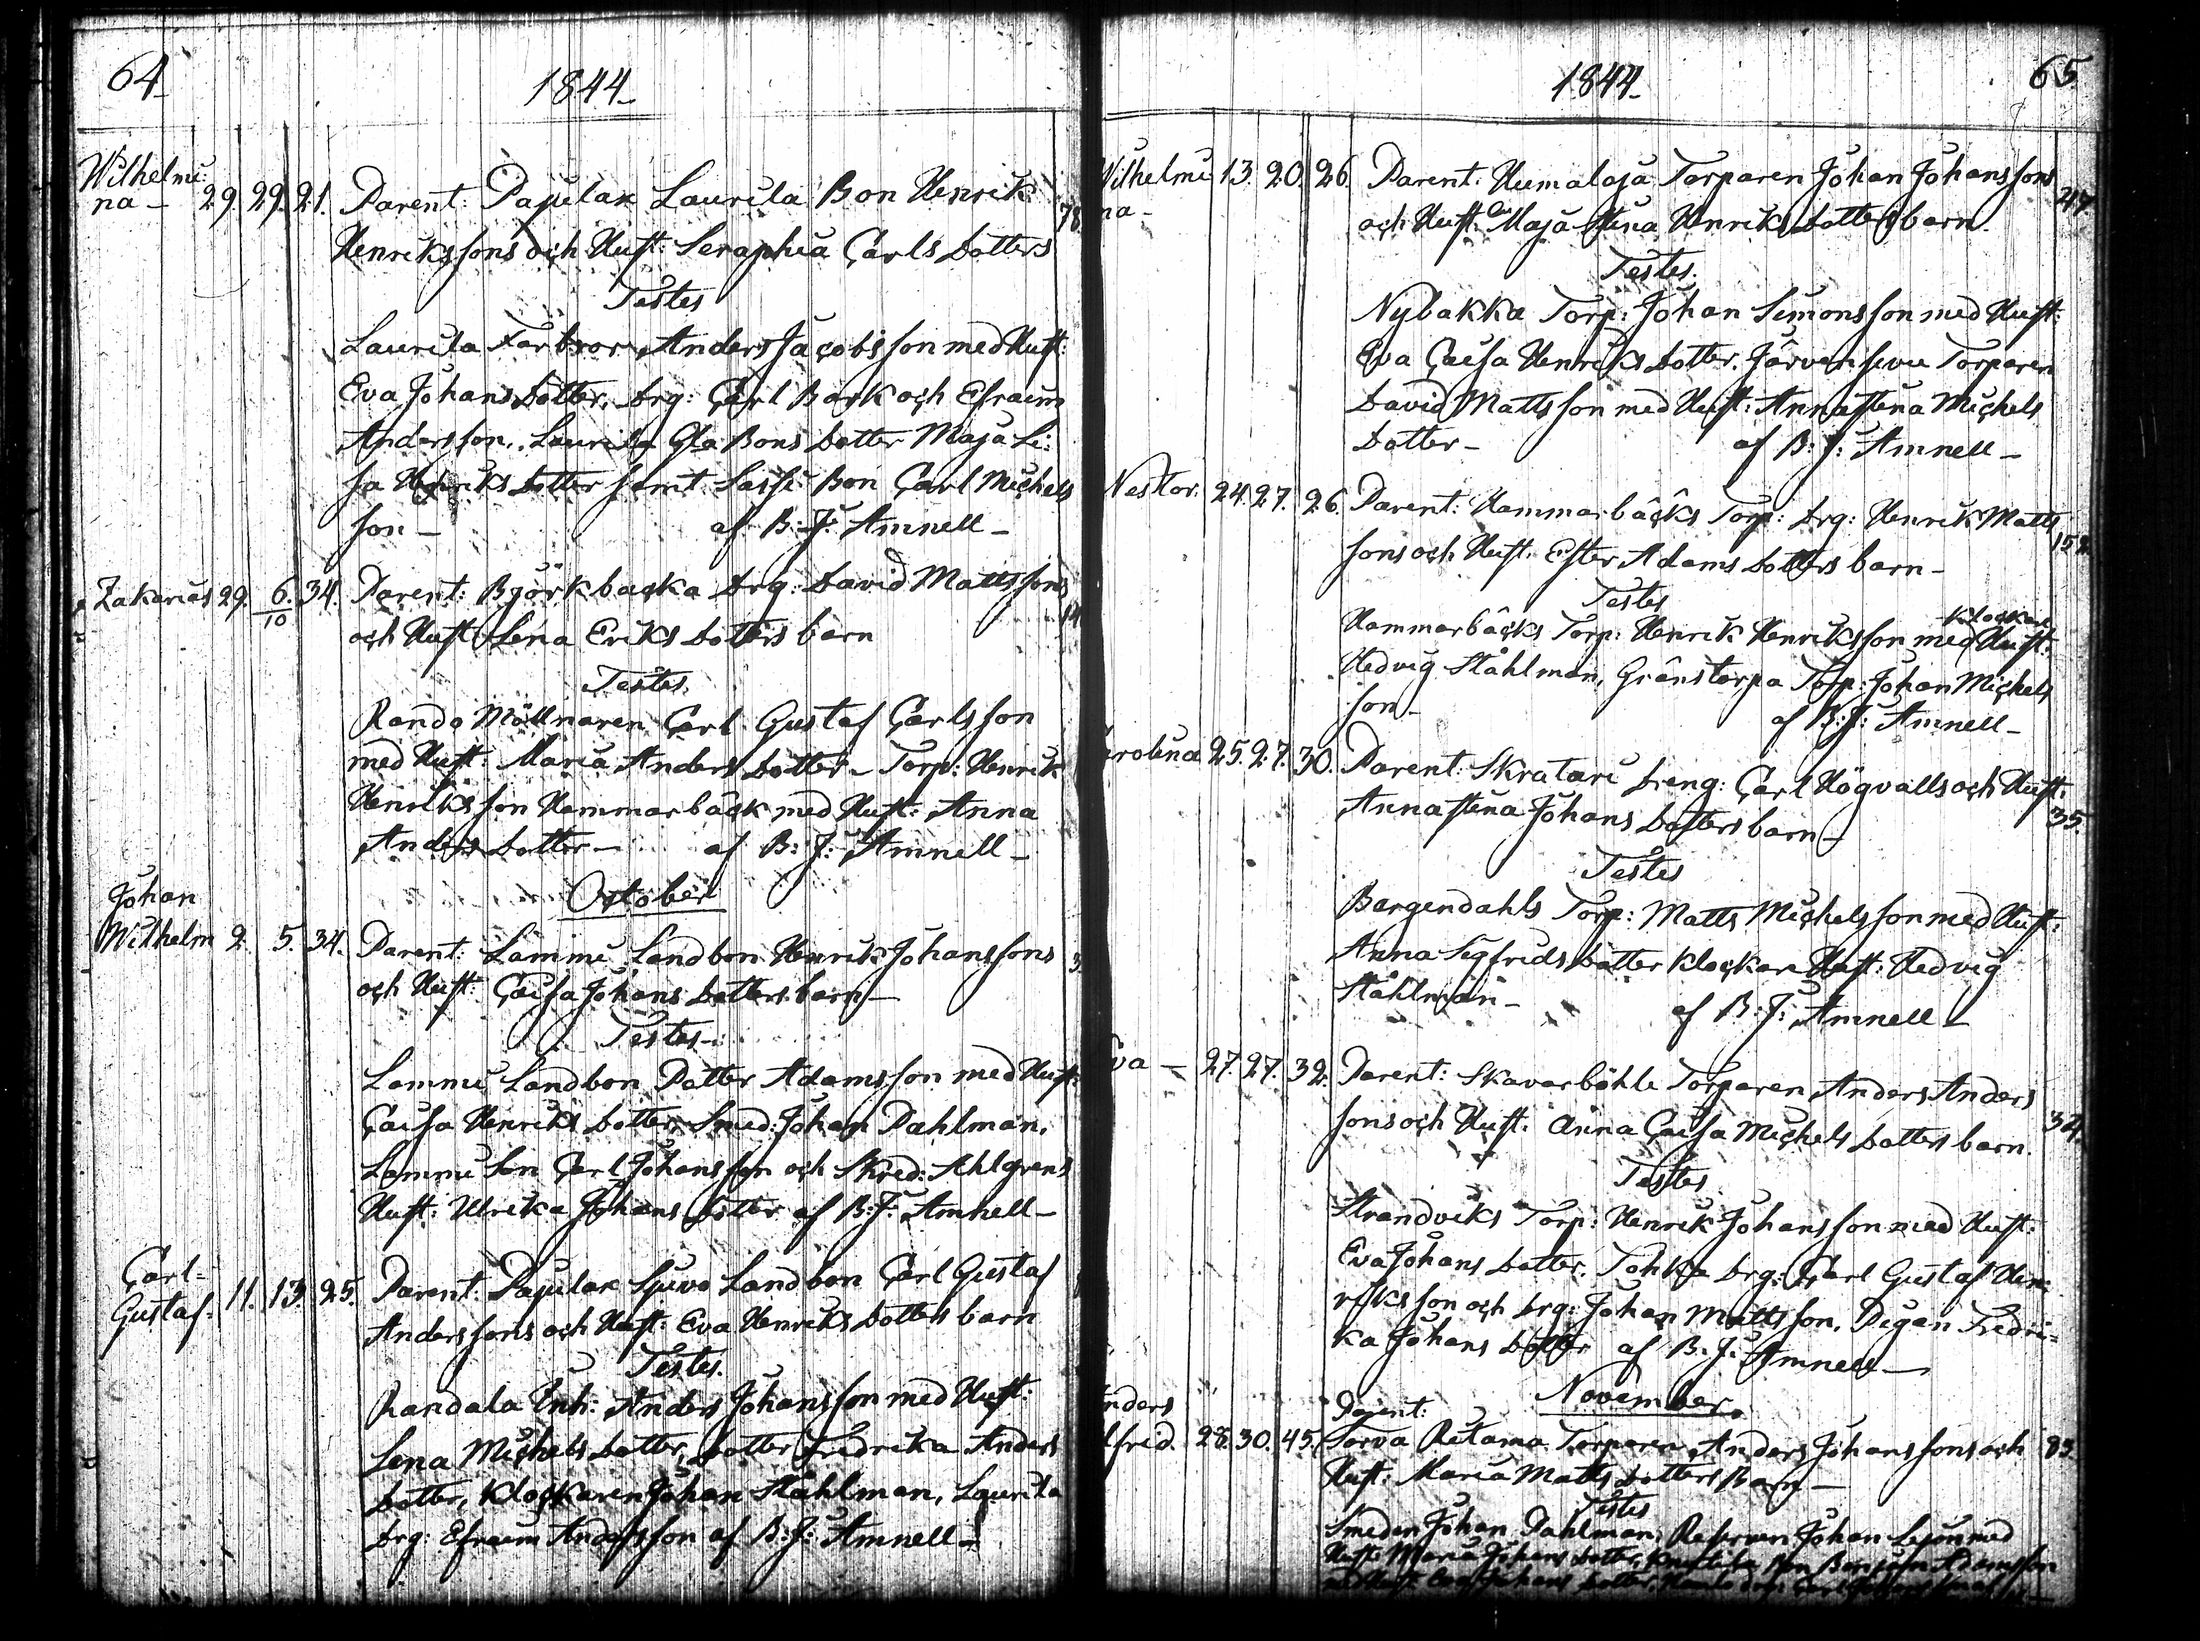 64
1844
Wilhelmi:
na - 29. 29. 21. Parent: Papilax Laurila Bon Henrik 78.
Henrikssons och Hust: Seraphia Carls Dotters
Testes
Laurila Farbror Anders Jacobsson med Hust:
Eva Johans Dotter, Drg: Carl Bark och Efraim
Andersson, Laurila Gla Bons Dotter Maja Li:
sa Henriks Dotter samt Sassi Bon Carl Michels
son - af B: J: Amnell -
Zakarias 29. 6./10 34. Parent: Björkbacka Drg: David Mattssons
och Hust Lena Eriks Dotters barn
Testes
Rando Möllnaren Carl Gustaf Carlsson
med Hust: Maria Anders Dotter - Torp: Henrik
Henriksson Hammarbäck med Hust: Anna
Anders Dotter - af B: J: Amnell -
October
Johan
Wilhelm 2. 5. 34. Parent: Lammi Landbon Henrik Johanssons
och Hust: Caisa Johans Dotters barn -
Testes -
Lammi Landbon Petter Adamsson med Hust:
Caisa Henriks Dotter, Smed: Johan Dahlman,
Lammi Son Carl Johansson och Skred: Ahlgrens
Hust: Ulrika Johans Dotter af B: J: Amnell -
Carl=
Gustaf. 11. 13. 25. Parent: Papilax Sjuvo Landbon Carl Gustaf
Anderssons och Hust: Eva Henriks Dotters barn
Testes.
Randala Inh: Anders Johansson med Hust:
Lena Michels Dotter, Dotter Fredrika Anders
Dotter, Klockaren Johan Ståhlman, Laurila
Drg: Efraim Andersson af B: J: Amnell -
1844
65
Wilhelmi 13. 20. 26. Parent: Humaloja Torparen Johan Johanssons 47.
na - och Hust: Maja Stina Henriks Dotters barn
Testes.
Nybakka Torp: Johan Simonsson med Hust:
Eva Caisa Henriks Dotter. Järvensivu Torparen
David Mattsson med Hust: Anna Stina Michels
Dotter - af B: J: Amnell -
Nestor. 24. 27. 26. Parent: Hammarbäcks Torp: Drg: Henrik Matts
sons och Hust. Ester Adams Dotters barn -
Testes
Klockare
Hammarbäcks Torp: Henrik Henriksson med Hust:
Hedvig Ståhlman, Gränstorpa Torp: Johan Michels
son - af B: J: Amnell -
arolina 25. 27. 30. Parent: Skratari Dreng: Carl Högvalls och Hust: 35.
Anna Stina Johans Dotters barn -
Testes
Bergendahls Torp: Matts Michelsson med Hust:
Anna Sigfrids Dotter Klockare Hust: Hedvig
Ståhlman - af B: J: Amnell -
Eva - 27. 27. 32. Parent: Skavarböhle Torparen Anders Anders 34.
sons och Hust: Anna Caisa Michels Dotters barn.
Testes
Strandviks Torp: Henrik Johansson med Hust:
Eva Johans Dotter. Tohka Drg: Carl Gustaf Hen:
riksson och Drg: Johan Mattsson, Pigan Fredri=
ka Johans Dotter af B: J: Amnell -
November.
nders Parent:
lfrid. 28. 30. 45. Torva Retama Torparen Anders Johanssons och 83.
Hust: Maria Matts Dotters Barn -
Testes
Smeden Johan Dahlman, Johan med
Hust: Maria Johans Dotter, Bon Adamsson
med Hust: Eva Johans Dotter